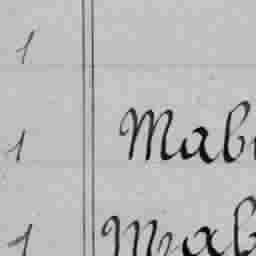 1
1 Mab
1 Mab